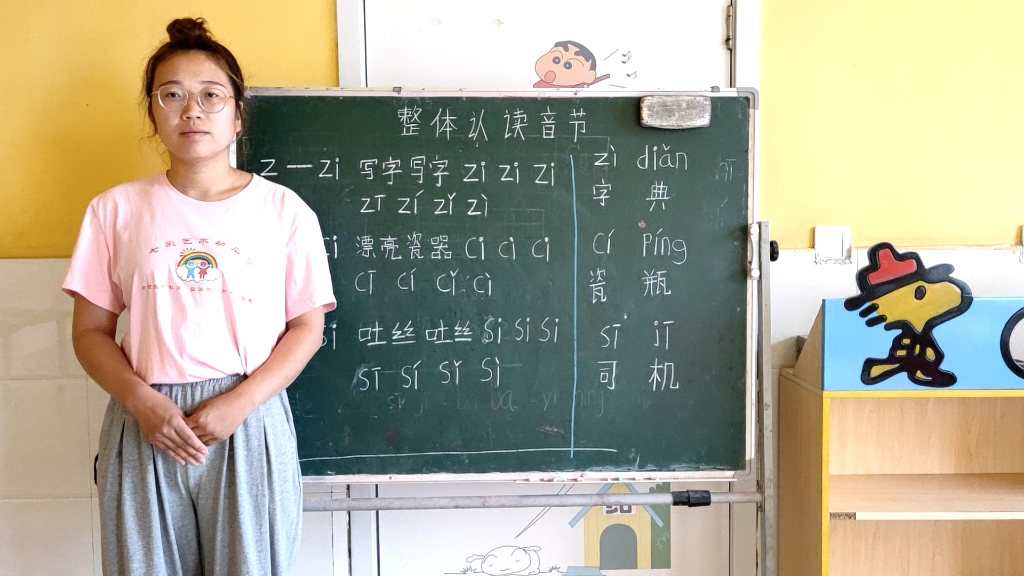 整体认读音节
z — zi 写字写字 zi zi zi
zī zí zǐ zì
漂亮瓷器 ci ci ci
cī cí cǐ cì
si 吐丝吐丝 si si si
sī sí sǐ sì
zì diǎn
字 典
cí píng
瓷 瓶
sī jī
司 机